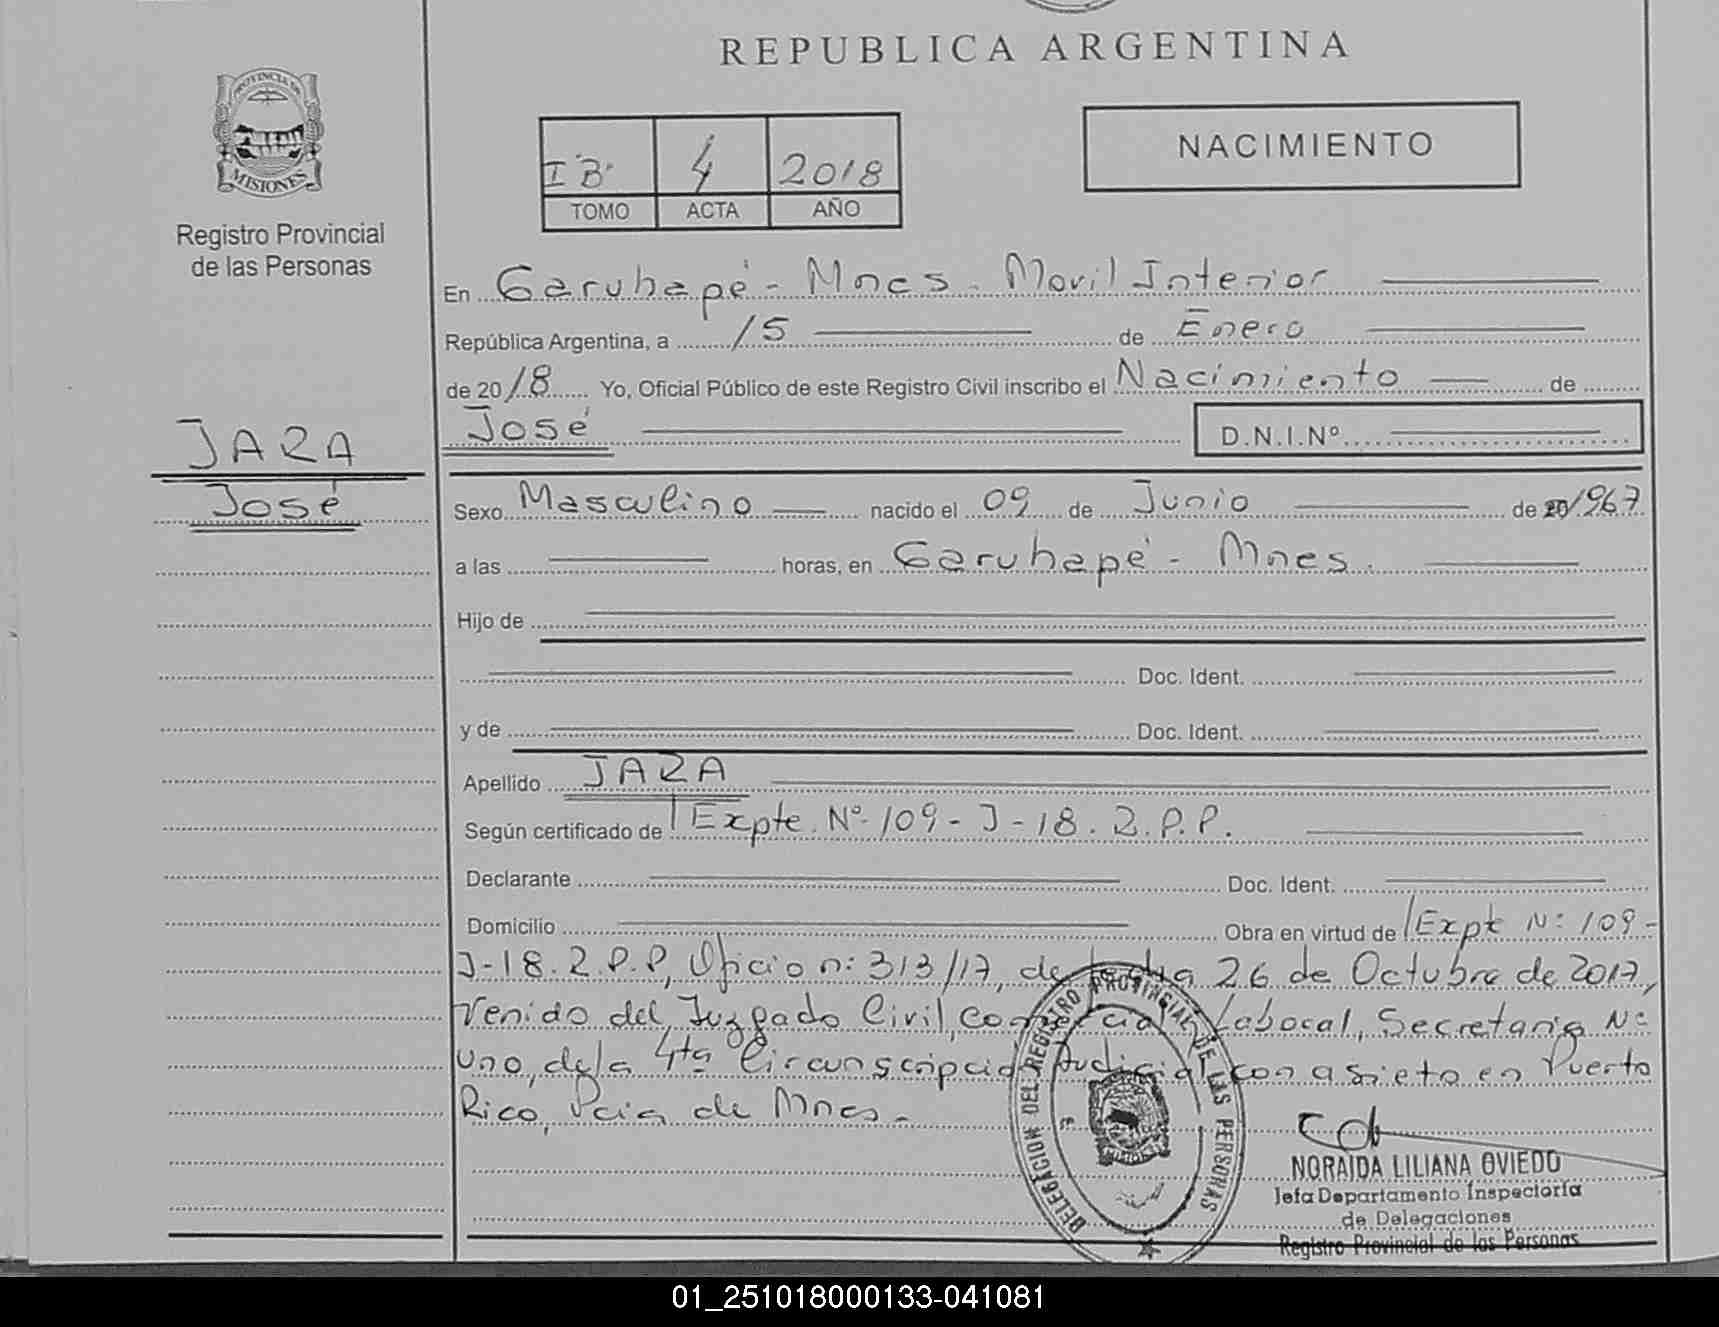 REPUBLICA ARGENTINA
PROVINCIA DE
MISIONES
Registro Provincial
de las Personas
I "B" 4 2018
TOMO ACTA AÑO
NACIMIENTO
En Garuhapé - Mnes - Movil Interior
República Argentina, a 15 de Enero
de 20 18 Yo, Oficial Público de este Registro Civil inscribo el Nacimiento de
José D.N.I.Nº
JARA
José
Sexo Masculino nacido el 09 de Junio de 20 1967
a las horas, en Garuhapé - Mnes.
Hijo de
Doc. Ident.
y de Doc. Ident.
Apellido JARA
Según certificado de Expte. Nº 109 - J - 18. R.P.P.
Declarante Doc. Ident.
Domicilio Obra en virtud de Expte N: 109 -
J-18. R.P.P, Oficio n: 313/17, de fecha 26 de Octubre de 2017,
Venido del Juzgado Civil, Comercial, Laboral, Secretaria Nº
uno, de la 4ta Circunscripción Judicial con asieto en Puerto
Rico, Pcia de Mnes -
DELEGACION DEL REGISTRO PROVINCIAL DE LAS PERSONAS
NORAIDA LILIANA OVIEDO
Jefa Departamento Inspectoría
de Delegaciones
Registro Provincial de las Personas
01_251018000133-041081